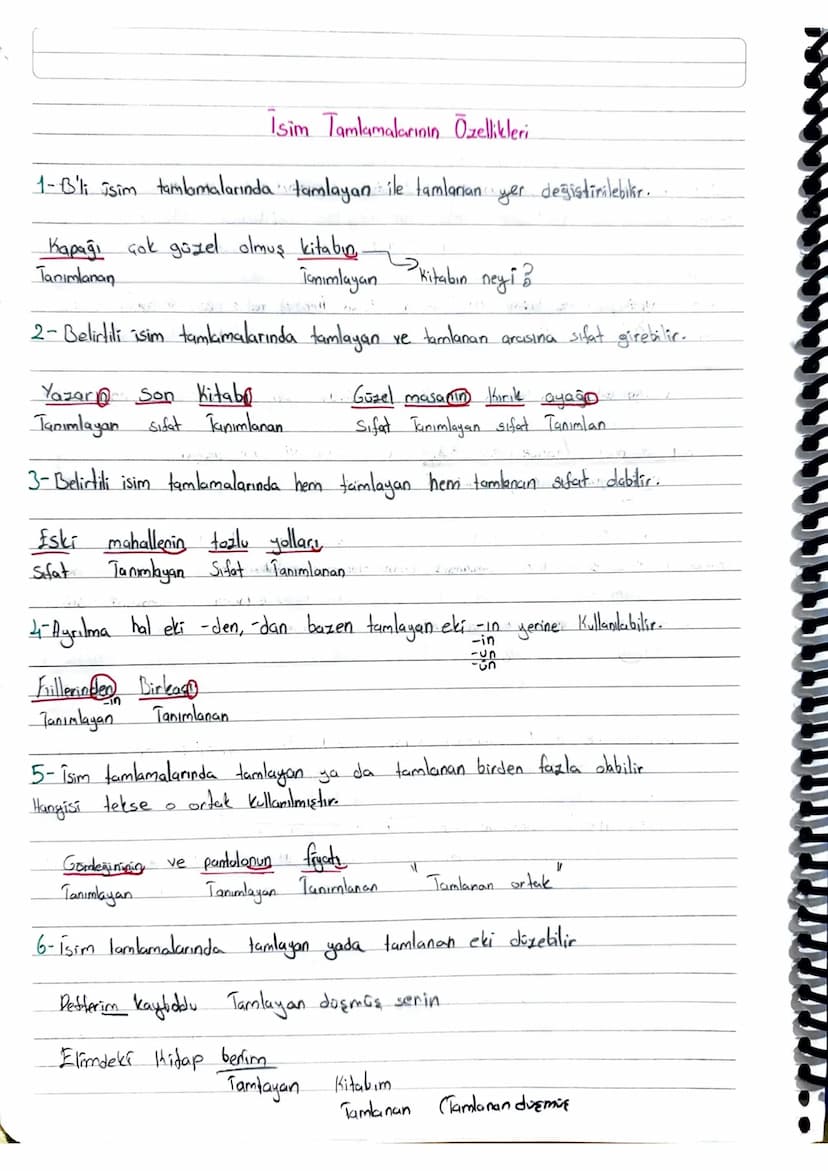 İsim Tamlamalarının Özellikleri
1-B'li isim tamlamalarında tamlayan ile tamlanan yer değiştirilebilir.
Kapağı çok güzel olmuş kitabın
Tanımlanan Tanımlayan Kitabın neyi?
2-Belirtili isim tamlamalarında tamlayan ve tamlanan arasına sıfat girebilir.
Yazarın son kitabı Güzel masanın kırık ayağı
Tanımlayan sıfat Tanımlanan Sıfat Tanımlayan sıfat Tanımlan
3-Belirtili isim tamlamalarında hem tamlayan hem tamlanan sıfat olabilir.
Eski mahallenin tozlu yolları
Sıfat Tanımlayan Sıfat Tanımlanan
4-Ayrılma hal eki -den, -dan bazen tamlayan eki -ın yerine kullanılabilir.
-in
-un
-ün
Fiillerinden Birkaçı
-in
Tanımlayan Tanımlanan
5-İsim tamlamalarında tamlayan ya da tamlanan birden fazla olabilir
Hangisi tekse o ortak kullanılmıştır.
ve pantolonun fiyatı
Tanımlayan Tanımlayan Tanımlanan "Tamlanan ortak"
6-İsim tamlamalarında tamlayan yada tamlanan eki düzebilir
Defterim kayboldu Tamlayan düşmüş senin
Elimdeki kitap benim
Tamlayan Kitabım
Tamlanan (Tamlanan düşmüş